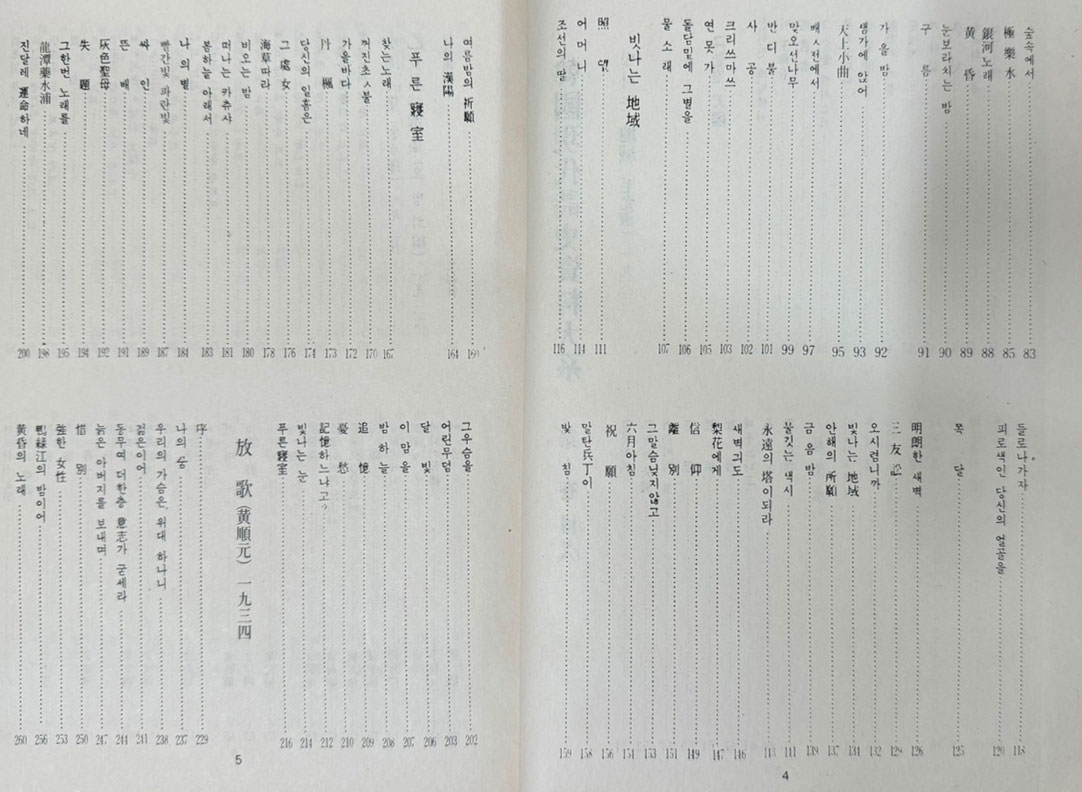 숲속에서 83
極樂水 85
銀河노래 88
黃昏 89
눈보라치는 밤 90
구름 91
가을밤 92
샘가에 앉어 93
天上小曲 95
배ㅅ전에서 97
맞오선나무 99
반디불 101
사공 102
크리쓰마쓰 103
연못가 105
돌담밑에 그별을 106
물소래 107
빗나는 地域
照 111
어머니 114
조선의 딸 116
들로나가자 118
피로색인 당신의 얼골을 120
쪽달 125
明朗한 새벽 126
三友 129
오시렵니까 132
빛나는 地域 134
안해의 所願 137
금음밤 139
물깃는 색시 141
永遠의 塔이되라 143
새벽긔도 146
梨花에게 147
信仰 149
離別 151
그말슴닞지않고 153
六月아침 154
祝願 156
말탄兵丁이 158
받침 159
4
여름밤의 祈願 160
나의 漢陽 164
푸른 寢室
찾는노래 167
꺼진초ㅅ불 170
가을바다 172
丹楓 173
당신의 일홈은 174
그 處女 176
海草따라 178
비오는 밤 180
떠나는 카츄샤 181
봄하늘 아래서 183
나의별 184
빨간빛 파란빛 187
싸인 189
뜬배 191
灰色聖母 192
失題 194
그한번 노래를 195
龍潭藥水浦 198
진달레 運命하네 200
그우슴을 202
어린무덤 203
달빛 206
이맘을 207
밤하늘 208
追憶 209
憂愁 210
記憶하느냐고? 212
빛나는 눈 214
푸른寢室 216
放歌(黃順元) 一九三四
序 229
나의 꿈 237
우리의 가슴은 위대 하나니 238
젊은이어 241
동무여 더한층 意志가 굳세라 244
늙은 아버지를 보내며 247
惜別 250
强한 女性 253
鴨綠江의 밤이어 256
黃昏의 노래 260
5